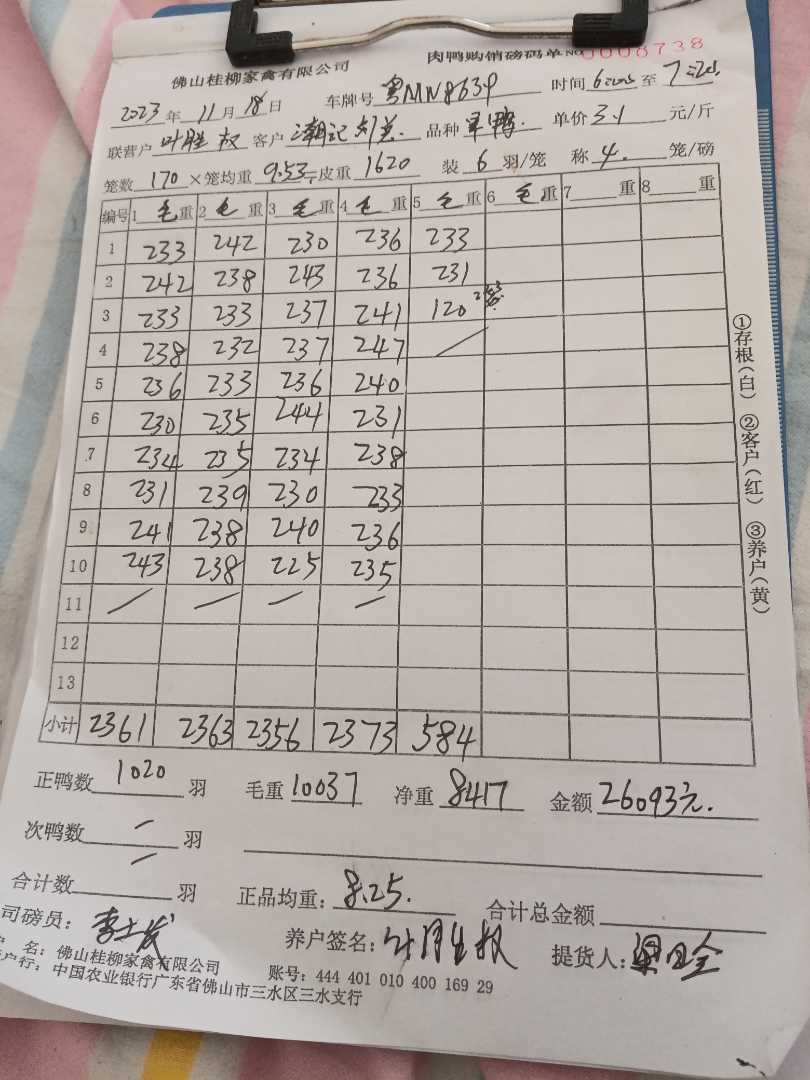 佛山桂柳家禽有限公司 肉鸭购销磅码单 No 0008738
2023年11月18日 车牌号 粤MN8639 时间 6:20 至 7:20
联营户 叶胜权 客户 潮记 品种 单价 3.1 元/斤
笼数 170 ×笼均重 9.53 =皮重 1620 装 6 羽/笼 称 4. 笼/磅
编号 1 毛 重 2 毛 重 3 毛 重 4 毛 重 5 毛 重 6 毛 重 7 重 8 重
1 233 242 230 236 233
2 242 238 243 236 231
3 233 233 237 241 120
4 238 232 237 247
5 236 233 236 240
6 230 235 244 231
7 234 235 234 238
8 231 239 230 233
9 241 238 240 236
10 243 238 225 235
11
12
13
小计 2361 2363 2356 2373 584
正鸭数 1020 羽 毛重 10037 净重 8417 金额 26093元.
次鸭数 羽
合计数 羽 正品均重: 8.25. 合计总金额
司磅员: 养户签名: 提货人:
名: 佛山桂柳家禽有限公司 账号: 444 401 010 400 169 29
户行: 中国农业银行广东省佛山市三水区三水支行
①存根(白) ②客户(红) ③养户(黄)